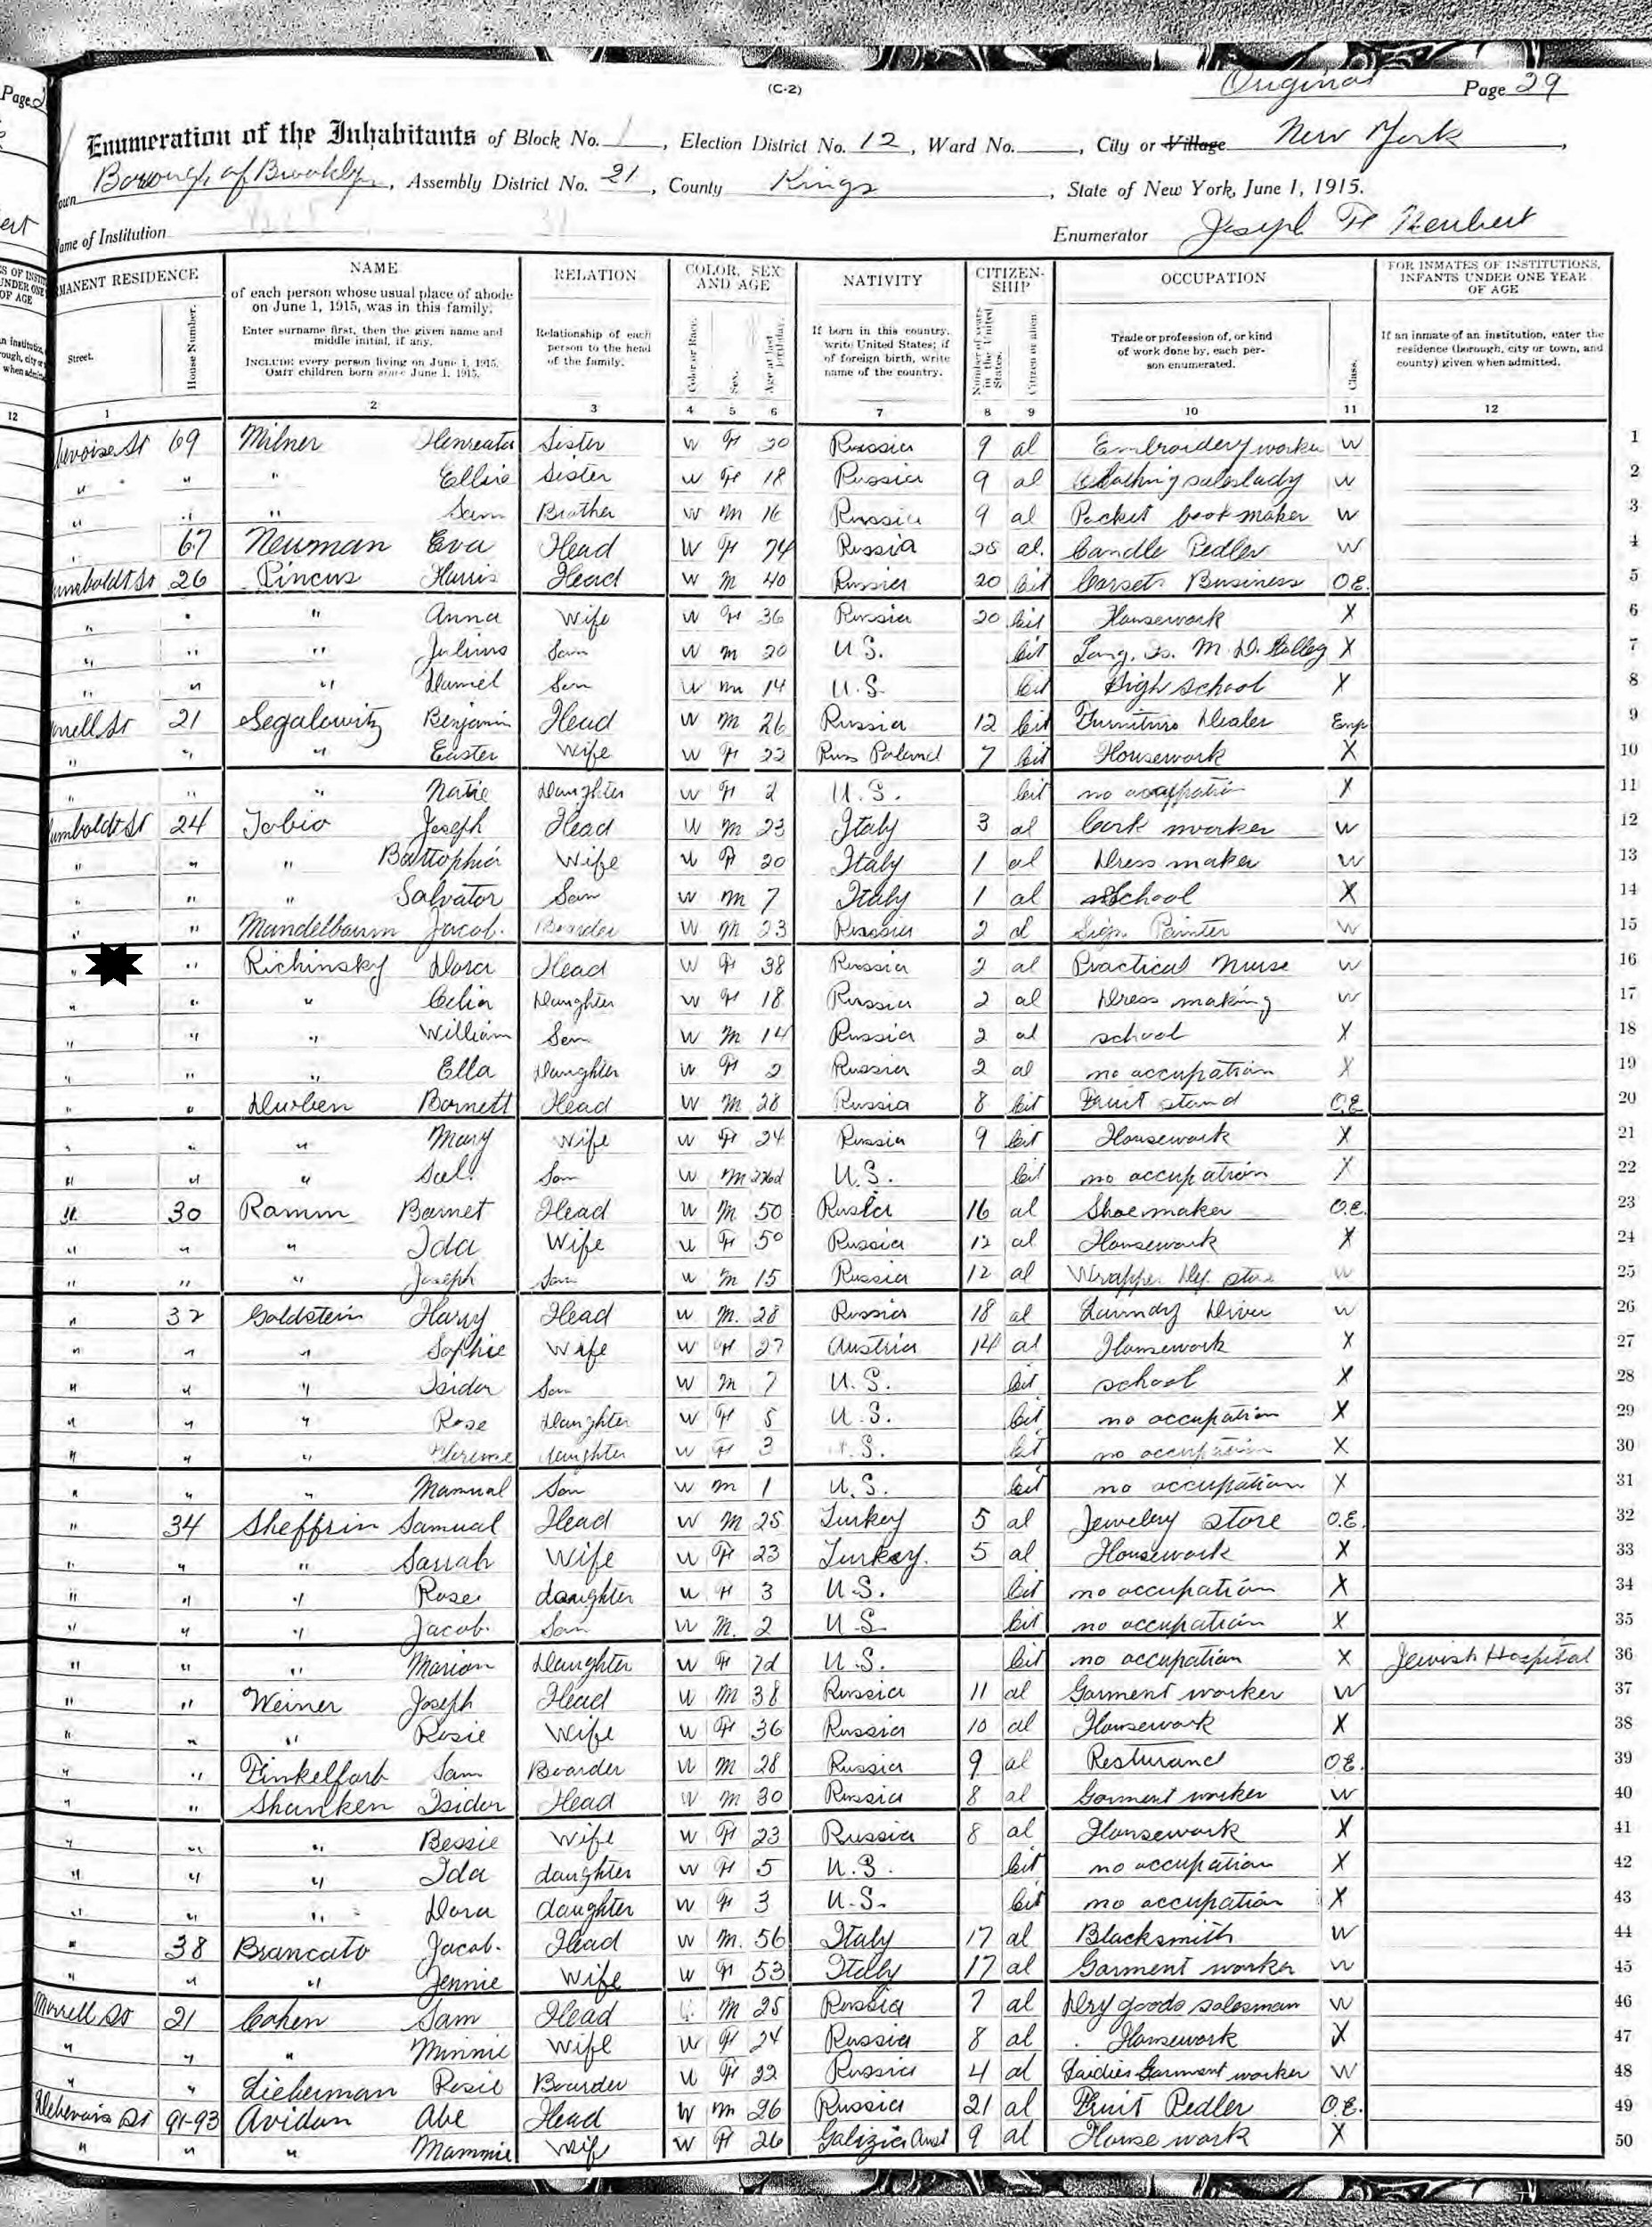 (C-2)
Original Page 29
Enumeration of the Inhabitants of Block No. 1, Election District No. 12, Ward No. , City or Village New York,
Borough of Brooklyn, Assembly District No. 21, County Kings, State of New York, June 1, 1915.
Name of Institution Enumerator Joseph H Neubert
MANENT RESIDENCE NAME RELATION COLOR, SEX AND AGE NATIVITY CITIZENSHIP OCCUPATION FOR INMATES OF INSTITUTIONS, INFANTS UNDER ONE YEAR OF AGE
Street. House Number.
of each person whose usual place of abode on June 1, 1915, was in this family.
Enter surname first, then the given name and middle initial, if any.
INCLUDE every person living on June 1, 1915. OMIT children born since June 1, 1915.
Relationship of each person to the head of the family.
Color or Race. Sex. Age at last birthday.
If born in this country, write United States; if of foreign birth, write name of the country.
Number of years in the United States. Citizen or alien.
Trade or profession of, or kind of work done by, each person enumerated.
Class.
If an inmate of an institution, enter the residence (borough, city or town, and county) given when admitted.
1 2 3 4 5 6 7 8 9 10 11 12
69 Milner Henreatta Sister W F 20 Russia 9 al Embroidery worker W 1
" " " Ellie Sister W F 18 Russia 9 al Clothing saleslady W 2
" " " Sam Brother W M 16 Russia 9 al Pocket book maker W 3
" 67 Neuman Eva Head W F 74 Russia 25 al. Candle Pedler W 4
umboldt St 26 Pincus Harris Head W M 40 Russia 20 Cit Corset Business O.E. 5
" " " Anna Wife W F 36 Russia 20 Cit Housework X 6
" " " Julius Son W M 20 U.S. Cit Long. Is. M.D. College X 7
" " " Daniel Son W M 14 U.S. Cit High school X 8
rrell St 21 Segalowitz Benjamin Head W M 26 Russia 12 Cit Furniture Dealer Emp 9
" " " Easter Wife W F 22 Russ Poland 7 Cit Housework X 10
" " " Natie Daughter W F 2 U.S. Cit no occupation X 11
umboldt St 24 Tobio Joseph Head W M 23 Italy 3 al Cork worker W 12
" " " Battophia Wife W F 20 Italy 1 al Dress maker W 13
" " " Salvator Son W M 7 Italy 1 al School X 14
" " Mandelbaum Jacob. Boarder W M 23 Russia 2 al Sign Painter W 15
" " Richinsky Dora Head W F 38 Russia 2 al Practical Nurse W 16
" " " Celia Daughter W F 18 Russia 2 al Dress making W 17
" " " William Son W M 14 Russia 2 al school X 18
" " " Ella Daughter W F 2 Russia 2 al no occupation X 19
" " Durben Barnett Head W M 28 Russia 8 Cit Fruit stand O.E. 20
" " " Mary Wife W F 24 Russia 9 Cit Housework X 21
" " " Sal. Son W M U.S. Cit no occupation X 22
" 30 Ramm Barnet Head W M 50 Russia 16 al Shoemaker O.E. 23
" " " Ida Wife W F 50 Russia 12 al Housework X 24
" " " Joseph Son W M 15 Russia 12 al Wrapper Dry. store W 25
" 32 Goldstein Harry Head W M. 28 Russia 18 al Laundry Driver W 26
" " " Sophie Wife W F 27 Austria 14 al Housework X 27
" " " Isider Son W M 7 U.S. Cit school X 28
" " " Rose Daughter W F 5 U.S. Cit no occupation X 29
" " " Florence daughter W F 3 U.S. Cit no occupation X 30
" " " Manual Son W M 1 U.S. Cit no occupation X 31
" 34 Sheffrin Samual Head W M 25 Turkey 5 al Jewelery store O.E. 32
" " " Sarrah Wife W F 23 Turkey. 5 al Housework X 33
" " " Rose daughter W F 3 U.S. Cit no occupation X 34
" " " Jacob. Son W M. 2 U.S. Cit no occupation X 35
" " " Marion Daughter W F 7d U.S. Cit no occupation X Jewish Hospital 36
" " Weiner Joseph Head W M 38 Russia 11 al Garment worker W 37
" " " Rosie Wife W F 36 Russia 10 al Housework X 38
" " Finkelfarb Sam Boarder W M 28 Russia 9 al Resturand O.E. 39
" " Shanken Isider Head W M 30 Russia 8 al Garment worker W 40
" " " Bessie Wife W F 23 Russia 8 al Housework X 41
" " " Ida daughter W F 5 U.S. Cit no occupation X 42
" " " Dora daughter W F 3 U.S. Cit no occupation X 43
" 38 Brancato Jacob. Head W M. 56 Italy 17 al Blacksmith W 44
" " " Jennie Wife W F 53 Itelly 17 al Garment worker W 45
Morrell St 21 Cohen Sam Head W M 25 Russia 7 al Dry goods salesman W 46
" " " Minnie Wife W F 24 Russia 8 al Housework X 47
" " Lieberman Rosie Boarder W F 22 Russia 4 al Laidies Garment worker W 48
91-93 Avidan Abe Head W M 26 Russia 21 al Fruit Pedler O.E. 49
" " " Mammie Wife W F 26 Galizia Aust 9 al House work X 50